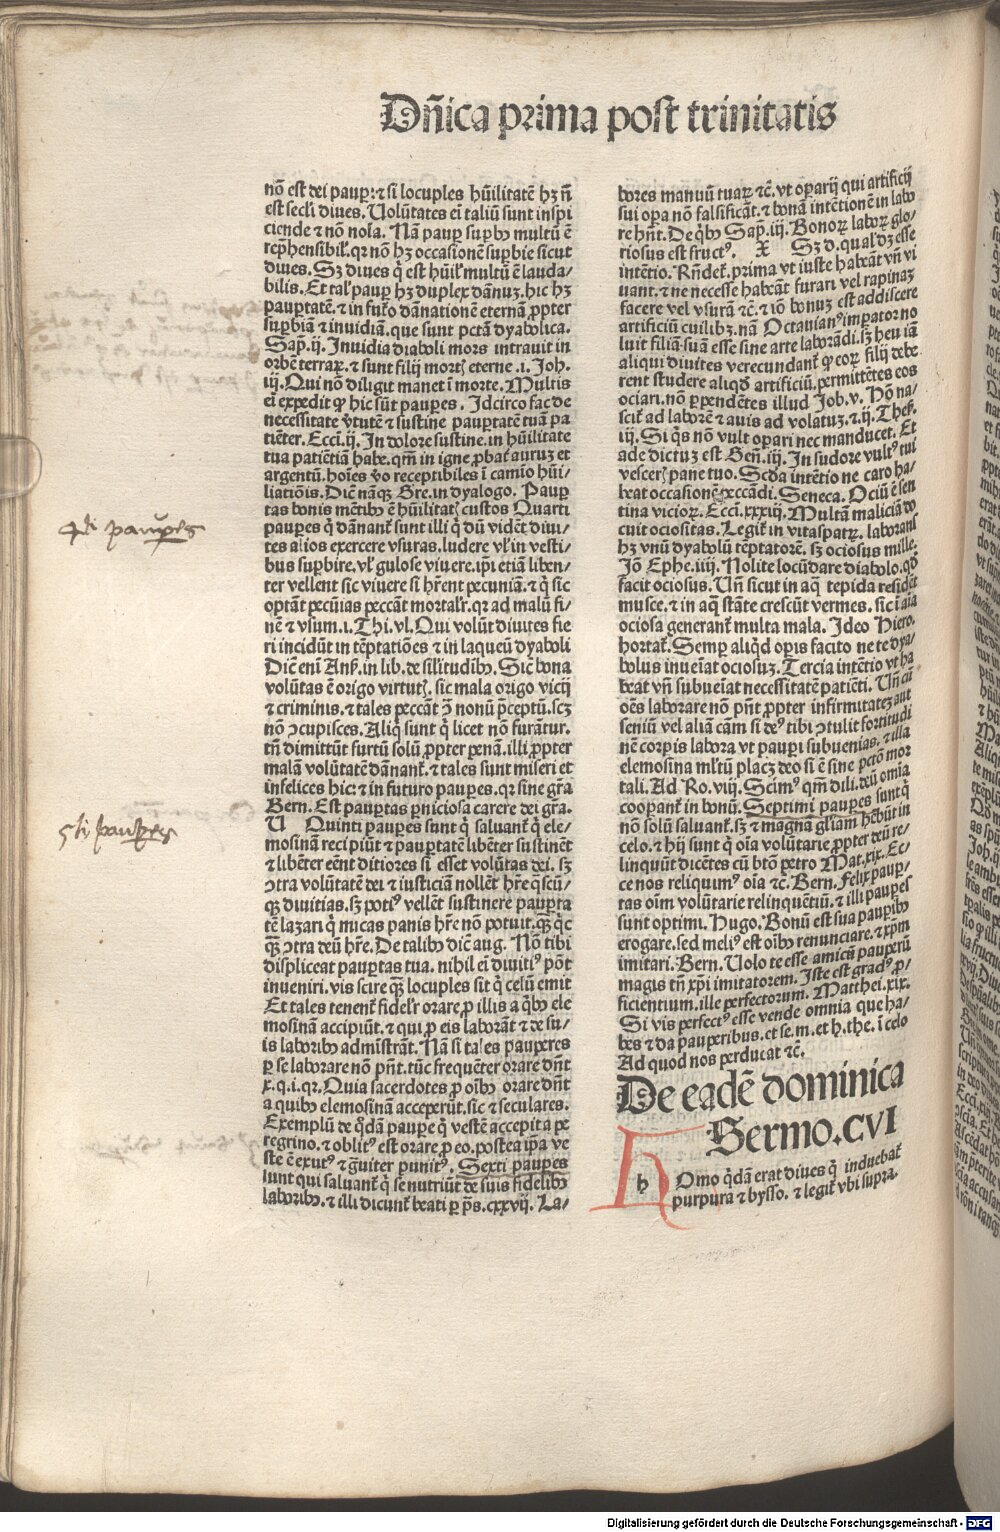 Dñica prima post trinitatis
nō est dei paup̱: ⁊ si locuples hūilitatē hꝫ ñ
est secłi diues. Uolūtates eī taliū sunt inspi
ciende ⁊ nō nola. Nā paup̱ sup̱bꝰ multū ē
rep̄hensibil'. qꝛ nō hꝫ occasionē sup̱bie sicut
diues. Sꝫ diues q̇ est hūil' multū ē lauda/
bilis. Et tal' paup̱ hꝫ duplex dānuꝫ. hic hꝫ
paup̱tatē. ⁊ in fut̄o dānationē eternā ꝓpter
sup̱biā ⁊ inuidiā. que sunt pctā dyabolica.
Sap̄. ij. Inuidia diaboli mors intrauit in
orbē terraꝝ. ⁊ sunt filij mortꝭ eterne .i. Joh.
iij. Qui nō diligit manet ī morte. Multis
eī expedit ꝙ hic sūt paup̱es. Idcirco fac de
necessitate v̇tutē ⁊ sustine paup̱tatē tuā pa
tiēter. Ecci. ij. In dolore sustine. in hūilitate
tua patiētiā habe. qm̄ in igne ꝓbat̄ auruꝫ et
argentū. hoīes v̇o receptibiles ī camīo hūi/
liatiōis. Dic̄ nāqꝫ Gre. in dyalogo. Paup̱
tas bonis mētibꝰ ē hūilitatꝭ custos Quarti
paup̱es q̇ dānant̄ sunt illi q̇ dū vidēt diui/
tes alios exercere vsuras. ludere vl' in vesti/
bus sup̱bire. vl' gulose viuere. ip̄i etiā liben/
ter vellent sic viuere si hr̄ent pecuniā. ⁊ q̇ sic
optāt pecūias peccāt mortalr̄. qꝛ ad malū fi/
nē ⁊ vsum. i. Thi. vl. Qui volūt diuites fie
ri incidūt in tēptatiōes ⁊ in laqueū dyaboli
Dic̄ enī Anſ. in lib. de silitudībꝰ. Sic̄ bona
volūtas ē origo virtutꝭ. sic mala origo vicij
⁊ criminis. ⁊ tales peccāt ꝯ nonū p̄ceptū. scꝫ
nō ꝯcupisces. Aliq̇ sunt q̇ licet nō furāntur.
tn̄ dimittūt furtū solū ꝓpter penā. illi ꝓpter
malā volūtatē dānant̄. ⁊ tales sunt miseri et
infelices hic: ⁊ in futuro paup̱es. qꝛ sine gr̄a
Bern. Est paup̱tas p̱niciosa carere dei gr̄a.
U Quinti paup̱es sunt q̇ saluant̄ q̇ ele/
mosinā recipiūt ⁊ paup̱tatē libēter sustinēt
⁊ libēter eēnt ditiores si esset volūtas dei. sꝫ
ꝯtra volūtatē dei ⁊ iusticiā nollēt hr̄e q̄scū/
qꝫ diuitias. sꝫ potiꝰ vellēt sustinere paup̱ta
tē lazari q̇ micas panis hr̄e nō potuit. qꝫ q̇c
qꝫ ꝯtra deū hr̄e. De talibꝰ dic̄ aug. Nō tibi
displiceat paup̱tas tua. nihil eī diuitiꝰ pōt
inueniri. vis scire qꝫ locuples sit q̇ celū emit
Et tales tenent̄ fidelr̄ orare ꝓ illis a q̇bꝰ ele
mosinā accipiūt. ⁊ qui ꝓ eis laborāt ⁊ de su/
is laboribꝰ admīstrāt. Nā si tales paup̱eres
ꝑ se laborare nō pn̄t. tūc frequēter orare dn̄t
x. q. i. qꝛ. Quia sacerdotes ꝓ oībꝰ orare dn̄t
a quibꝰ elemosinā acceperūt. sic ⁊ seculares.
Exemplū de q̇dā paup̱e q̇ vestē accepit a pe
regrino. ⁊ oblitꝰ est orare ꝓ eo. postea ip̄a ve
ste ē exutꝰ ⁊ g̃uiter punitꝰ. Sexti paup̱es
sunt qui saluant̄ q̇ se nutriūt de suis fidelibꝰ
laboribꝰ. ⁊ illi dicunt̄ beati ꝑ p̄s. cxxvij. La/
4ti paup̱es
5ti paup̱es
bores manuū tuaꝝ ⁊c̄. vt oꝑarij qui artificij
sui oꝑa nō falsificāt. ⁊ bonā intētionē in labo
re hn̄t. De q̇bꝰ Sap̄. iij. Bonoꝝ laboꝝ glo/
riosus est fructꝰ. X Sꝫ d. qual' dꝫ esse
intētio. Rn̄det̄. prima vt iuste habeāt vn̄ vi
uant. ⁊ ne necesse habeāt furari vel rapinaꝫ
facere vel vsurā ⁊c̄. ⁊ iō bonuꝫ est addiscere
artificiū cuilibꝫ. nā Octauianꝰ imꝑator no
luit filiā suā esse sine arte laborādi. sꝫ heu iā
aliqui diuites verecundant̄ ꝙ eoꝝ filij debe
rent studere aliqd̄ artificiū. permittētes eos
ociari. nō ꝑpendētes illud Job. v. Hō na/
scit̄ ad laborē ⁊ auis ad volatuꝫ. ⁊. ij. Thes.
iij. Si q̇s nō vult oꝑari nec manducet. Et
ade dictuꝫ est Gen̄. iij. In sudore vultꝰ tui
vescerꝭ pane tuo. Scd̄a intētio ne caro ha/
beat occasionē peccādi. Seneca. Ociū ē sen
tina vicioꝝ. Ecci. xxxiij. Multā maliciā do
cuit ociositas. Legit̄ in vitaspatꝝ. laborans
hꝫ vnū dyabolū tēptatorē. sꝫ ociosus mille.
Iō Ephe. iiij. Nolite locū dare diabolo. qd̄
facit ociosus. Un̄ sicut in aq̄ tepida resident
musce. ⁊ in aq̄ stāte crescūt vermes. sic ī aīa
ociosa generant̄ multa mala. Ideo Hiero.
hortat̄. Semꝑ aliqd̄ oꝑis facito ne te dya/
bolus inueīat ociosuꝫ. Tercia intētio vt ha
beat vn̄ subueīat necessitatē patiēti. Un̄ cū
oēs laborare nō pn̄t ꝓpter infirmitateꝫ aut
seniū vel aliā cām si deꝰ tibi ꝯtulit fortitudi
nē corꝑis labora vt pauꝑi subuenias. ⁊ illa
elemosina ml'tū placꝫ deo si ē sine pctō mor
tali. Ad Ro. viij. Scimꝰ qm̄ dili. deū omia
cooꝑant̄ in bonū. Septimi paup̱es sunt q̇
nō solū saluant̄. sꝫ ⁊ magnā gl'iam hēbūt in
celo. ⁊ hij sunt q̇ oīa volūtarie ꝓpter deū re/
linquūt dicētes cū bt̄o petro Mat. xix. Ec/
ce nos reliquimꝰ oīa ⁊c̄. Bern. Felix paup̱/
tas oīm volūtarie relinquētiū. ⁊ illi paup̱es
sunt optimi. Hugo. Bonū est sua pauꝑibꝰ
erogare. sed meliꝰ est oībꝰ renunciare. ⁊ xp̄m
imitari. Bern. Uolo te esse amicū pauꝑerū
magis tn̄ xp̄i imitatorem. Iste est gradꝰ ꝓ/
ficientium. ille perfectorum. Matthei. xix.
Si vis perfectꝰ esse vende omnia que ha/
bes ⁊ da pauperibus. et se. m. et h. the. ī celo
Ad quod nos perducat ⁊c̄.
De eadē dominica
Sermo. CVI
h Omo q̇dā erat diues q̇ induebat̄
purpura ⁊ bysso. ⁊ legit̄ vbi supra.
Digitalisierung gefördert durch die Deutsche Forschungsgemeinschaft - DFG